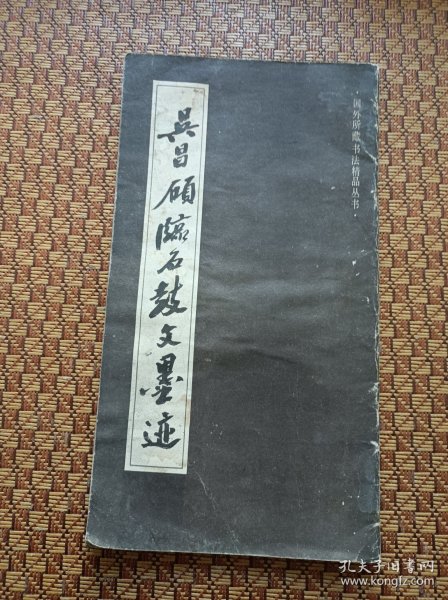 ·国外所藏书法精品丛书·
吴昌硕临石鼓文墨迹
孔夫子旧书网
www.kongfz.com